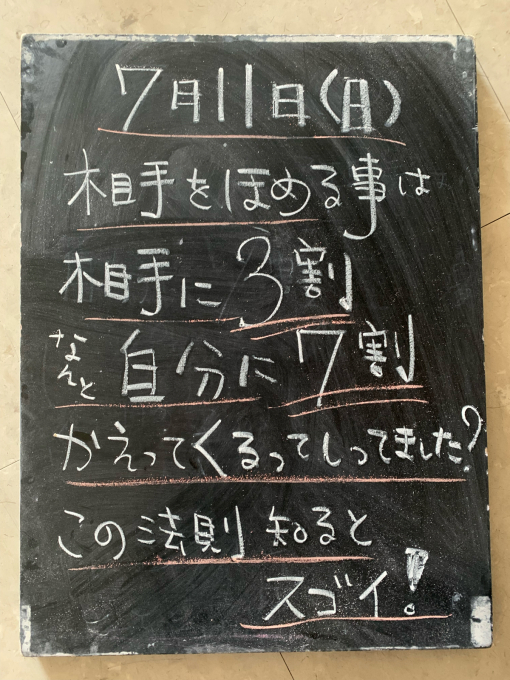 7月11日(日)
相手をほめる事は
相手に3割
なんと自分に7割
かえってくるってしってました?
この法則知ると
スゴイ!